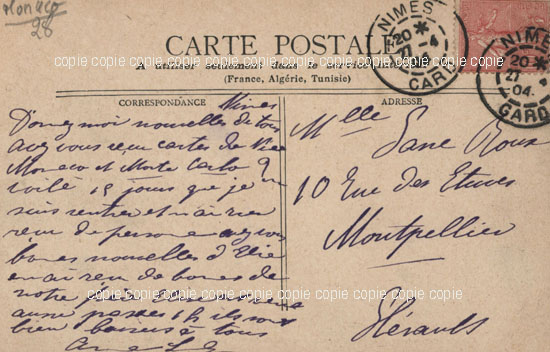 Monaco
28
CARTE POSTALE
copie copie copie copie copie copie copie copie copie copie copie
A utiliser seulement dans le
(France, Algérie, Tunisie)
NIMES
20 *
27 -4
GARD
NIMES
20 *
27
04
GARD
CORRESPONDANCE
ADRESSE
Nimes
Donnez moi nouvelles de tous
avez vous reçu cartes de Nice
Monaco et Monte Carlo
voilà 15 jours que je
suis rentrée et n'ai rien
reçu de personne avez vous
bonnes nouvelles d'
en ai reçu de bonnes de
notre
copie copie copie copie copie copie copie copie copie copie copie
ils sont
bien baisers à tous
Mlle Jane Roux
10 Rue des Etuves
Montpellier
Hérault